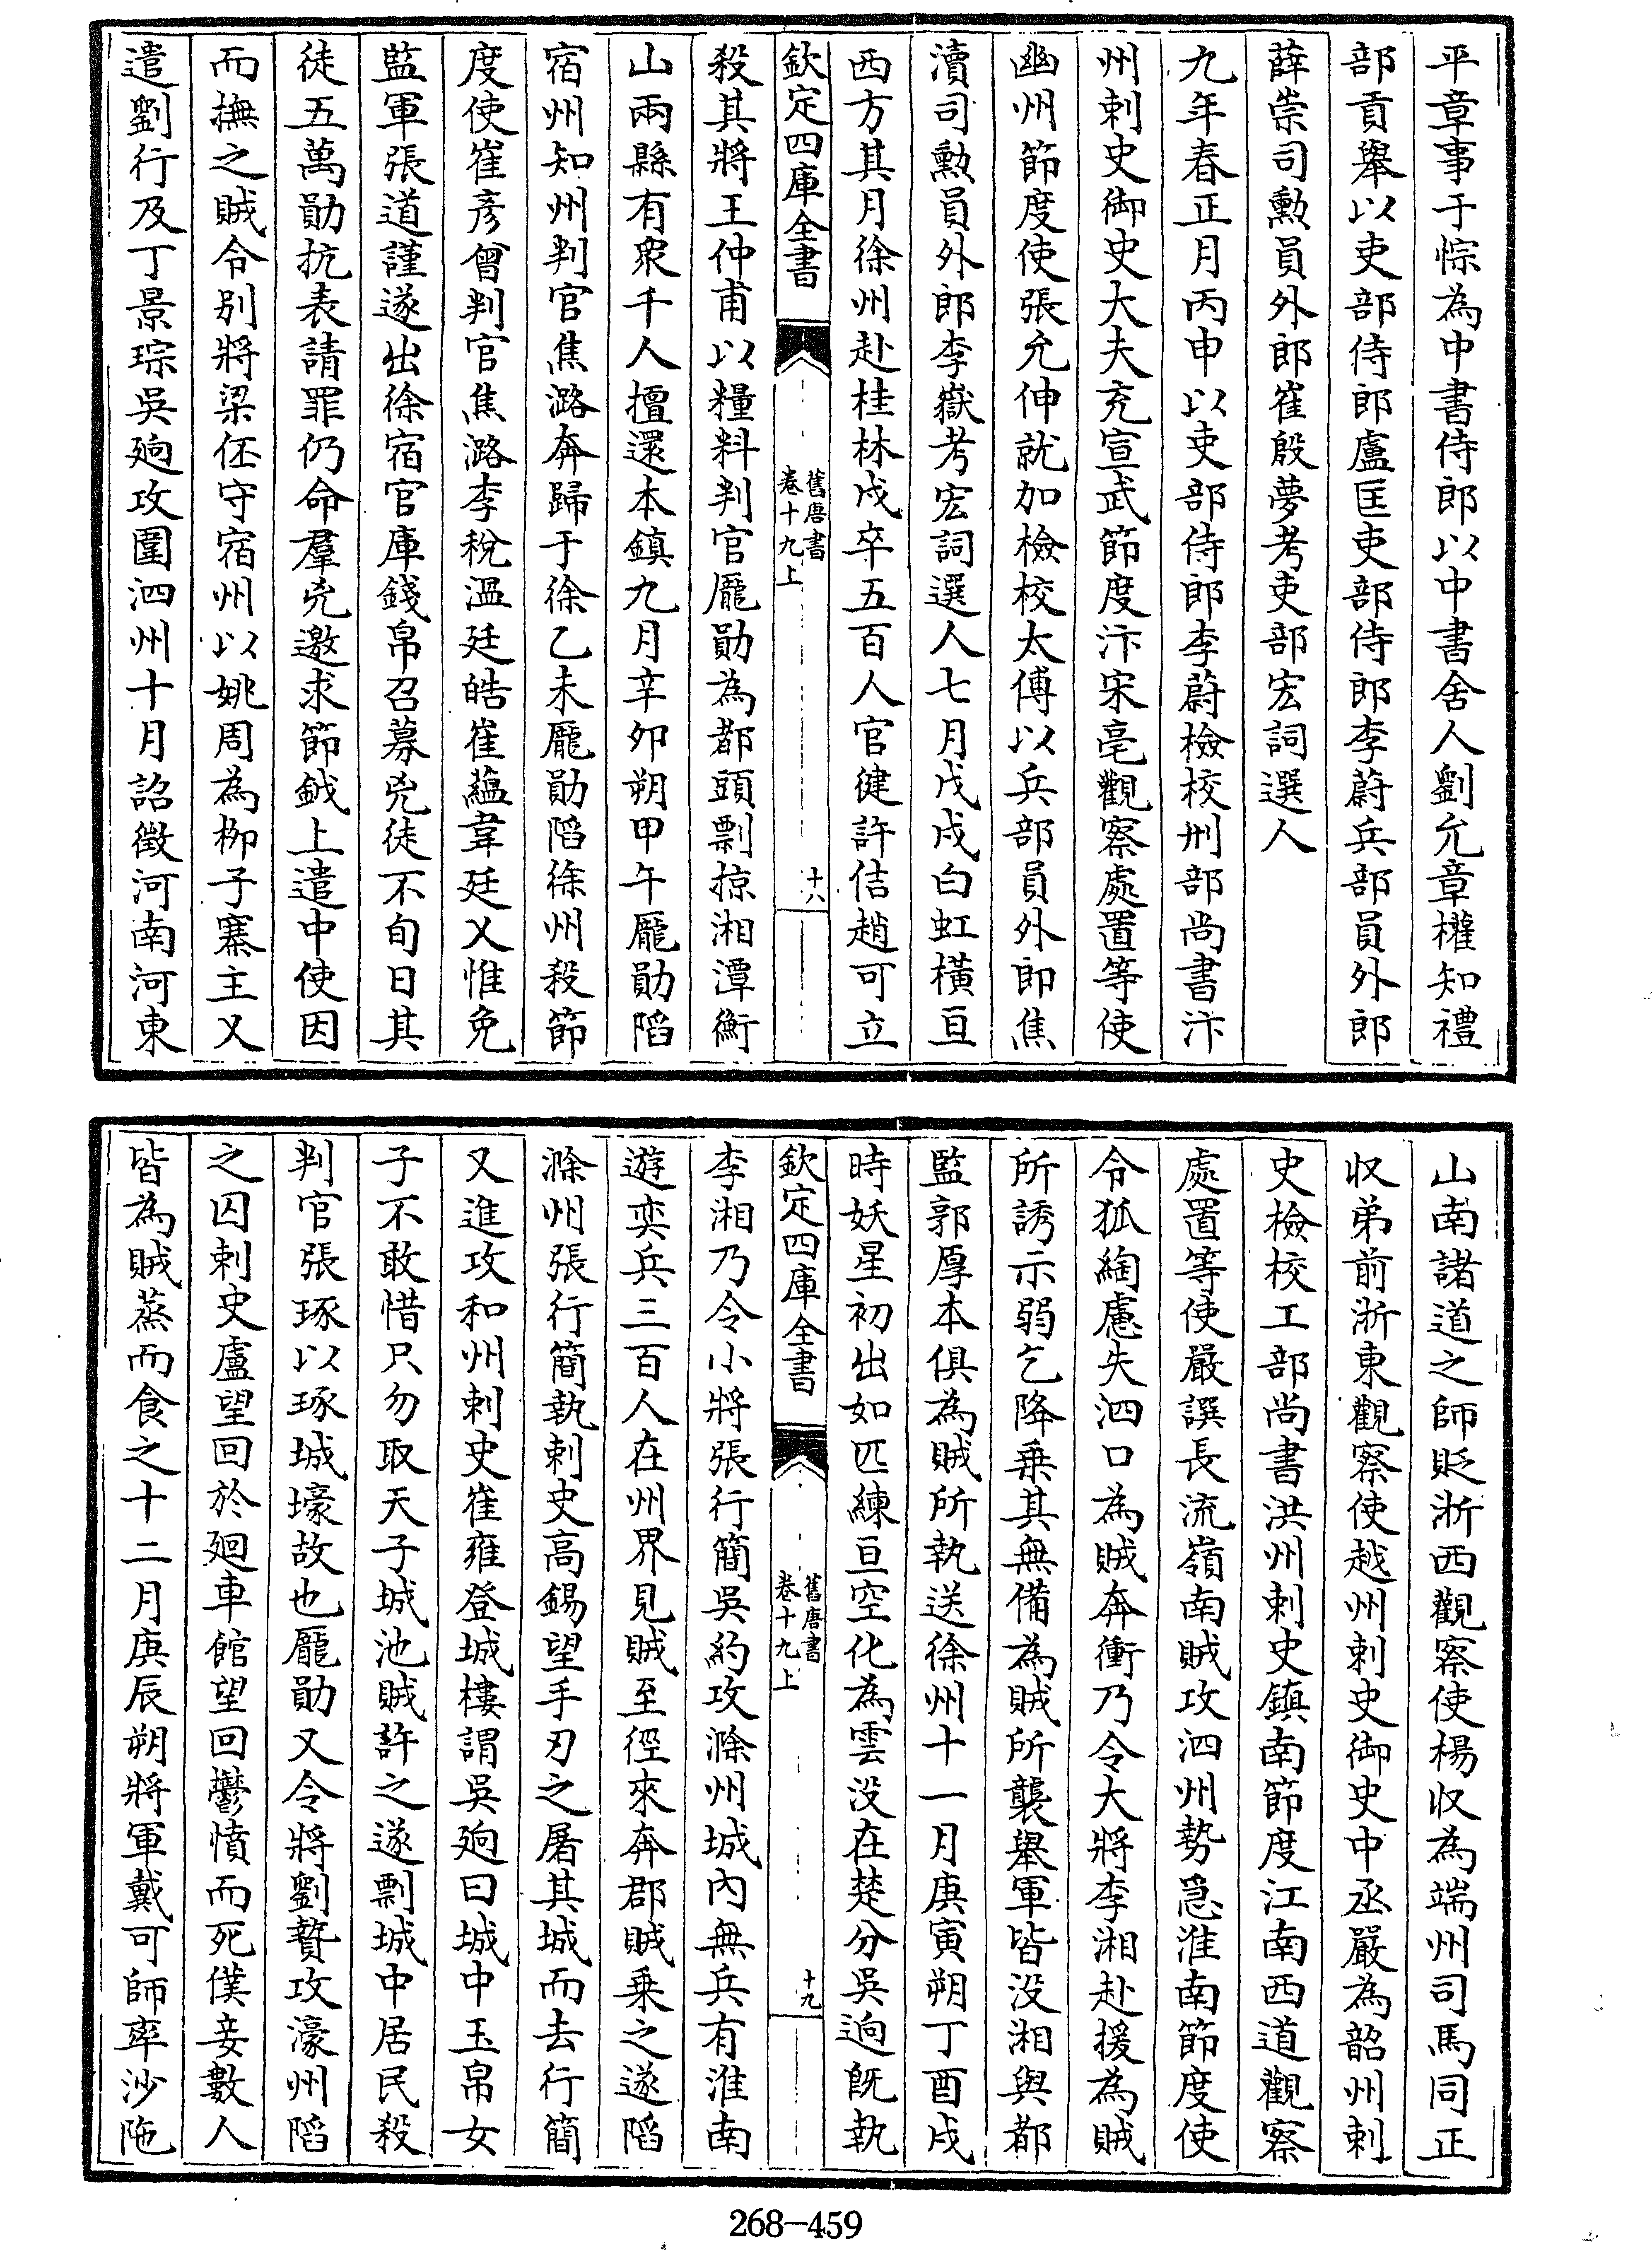 平章事于悰為中書侍郎以中書舍人劉允章權知禮
部貢舉以吏部侍郎盧匡吏部侍郎李蔚兵部員外郎
薛崇司勲員外郎崔殷夢考吏部宏詞選人
九年春正月丙申以吏部侍郎李蔚檢校刑部尚書汴
州刺史御史大夫充宣武節度汴宋亳觀察處置等使
幽州節度使張允伸就加檢校太傅以兵部員外郎焦
瀆司勲員外郎李嶽考宏詞選人七月戊戌白虹橫亘
西方其月徐州赴桂林戍卒五百人官健許佶趙可立
欽定四庫全書
舊唐書
卷十九上
十八
殺其將王仲甫以糧料判官龎勛為都頭剽掠湘潭衡
山兩縣有衆千人擅還本鎮九月辛卯朔甲午龎勛陷
宿州知州判官焦潞奔歸于徐乙未龎勛陷徐州殺節
度使崔彥曾判官焦潞李稅温廷皓崔藴韋廷乂惟免
監軍張道謹遂出徐宿官庫錢帛召募兇徒不旬日其
徒五萬勛抗表請罪仍命羣兇邀求節鉞上遣中使因
而撫之賊令别將梁伾守宿州以姚周為柳子寨主又
遣劉行及丁景琮吳迥攻圍泗州十月詔徵河南河東
山南諸道之師貶浙西觀察使楊収為端州司馬同正
収弟前浙東觀察使越州刺史御史中丞嚴為韶州刺
史檢校工部尚書洪州刺史鎮南節度江南西道觀察
處置等使嚴譔長流嶺南賊攻泗州勢急淮南節度使
令狐綯慮失泗口為賊奔衝乃令大將李湘赴援為賊
所誘示弱乞降乗其無備為賊所襲舉軍皆没湘與都
監郭厚本俱為賊所執送徐州十一月庚寅朔丁酉戌
時妖星初出如匹練亘空化為雲没在楚分吳迥既執
欽定四庫全書
舊唐書
卷十九上
十九
李湘乃令小將張行簡吳約攻滁州城内無兵有淮南
遊奕兵三百人在州界見賊至徑來奔郡賊乗之遂陷
滁州張行簡執刺史高錫望手刃之屠其城而去行簡
又進攻和州刺史崔雍登城樓謂吳迥曰城中玉帛女
子不敢惜只勿取天子城池賊許之遂剽城中居民殺
判官張琢以琢城壕故也龎勛又令將劉贄攻濠州陷
之囚刺史盧望回於廻車館望回鬱憤而死僕妾數人
皆為賊蒸而食之十二月庚辰朔將軍戴可師率沙陁
268-459